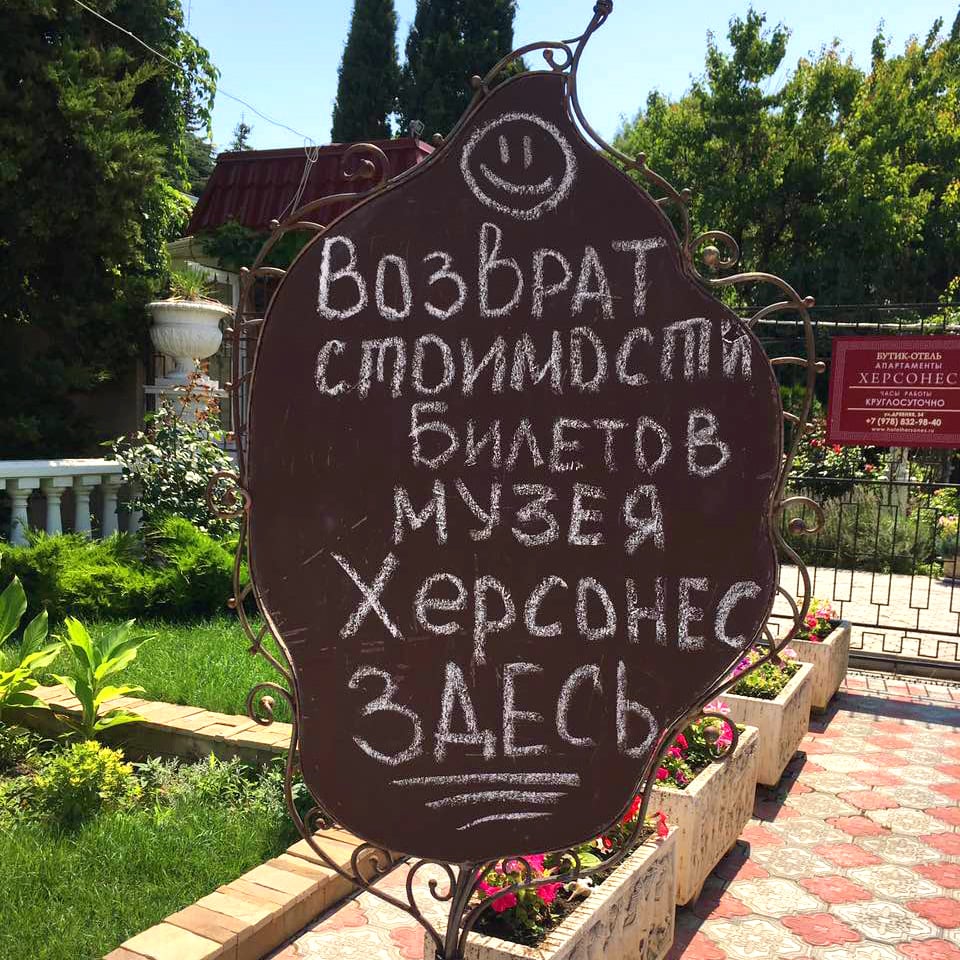 ВОЗВРАТ
СТОИМОСТИ
БИЛЕТОВ
МУЗЕЯ
ХЕРСОНЕС
ЗДЕСЬ
БУТИК-ОТЕЛЬ
АПАРТАМЕНТЫ
ХЕРСОНЕС
ЧАСЫ РАБОТЫ
КРУГЛОСУТОЧНО
ул.ДРЕВНЯЯ, 34
+7 (978) 832-98-40
www.hotelhersones.ru